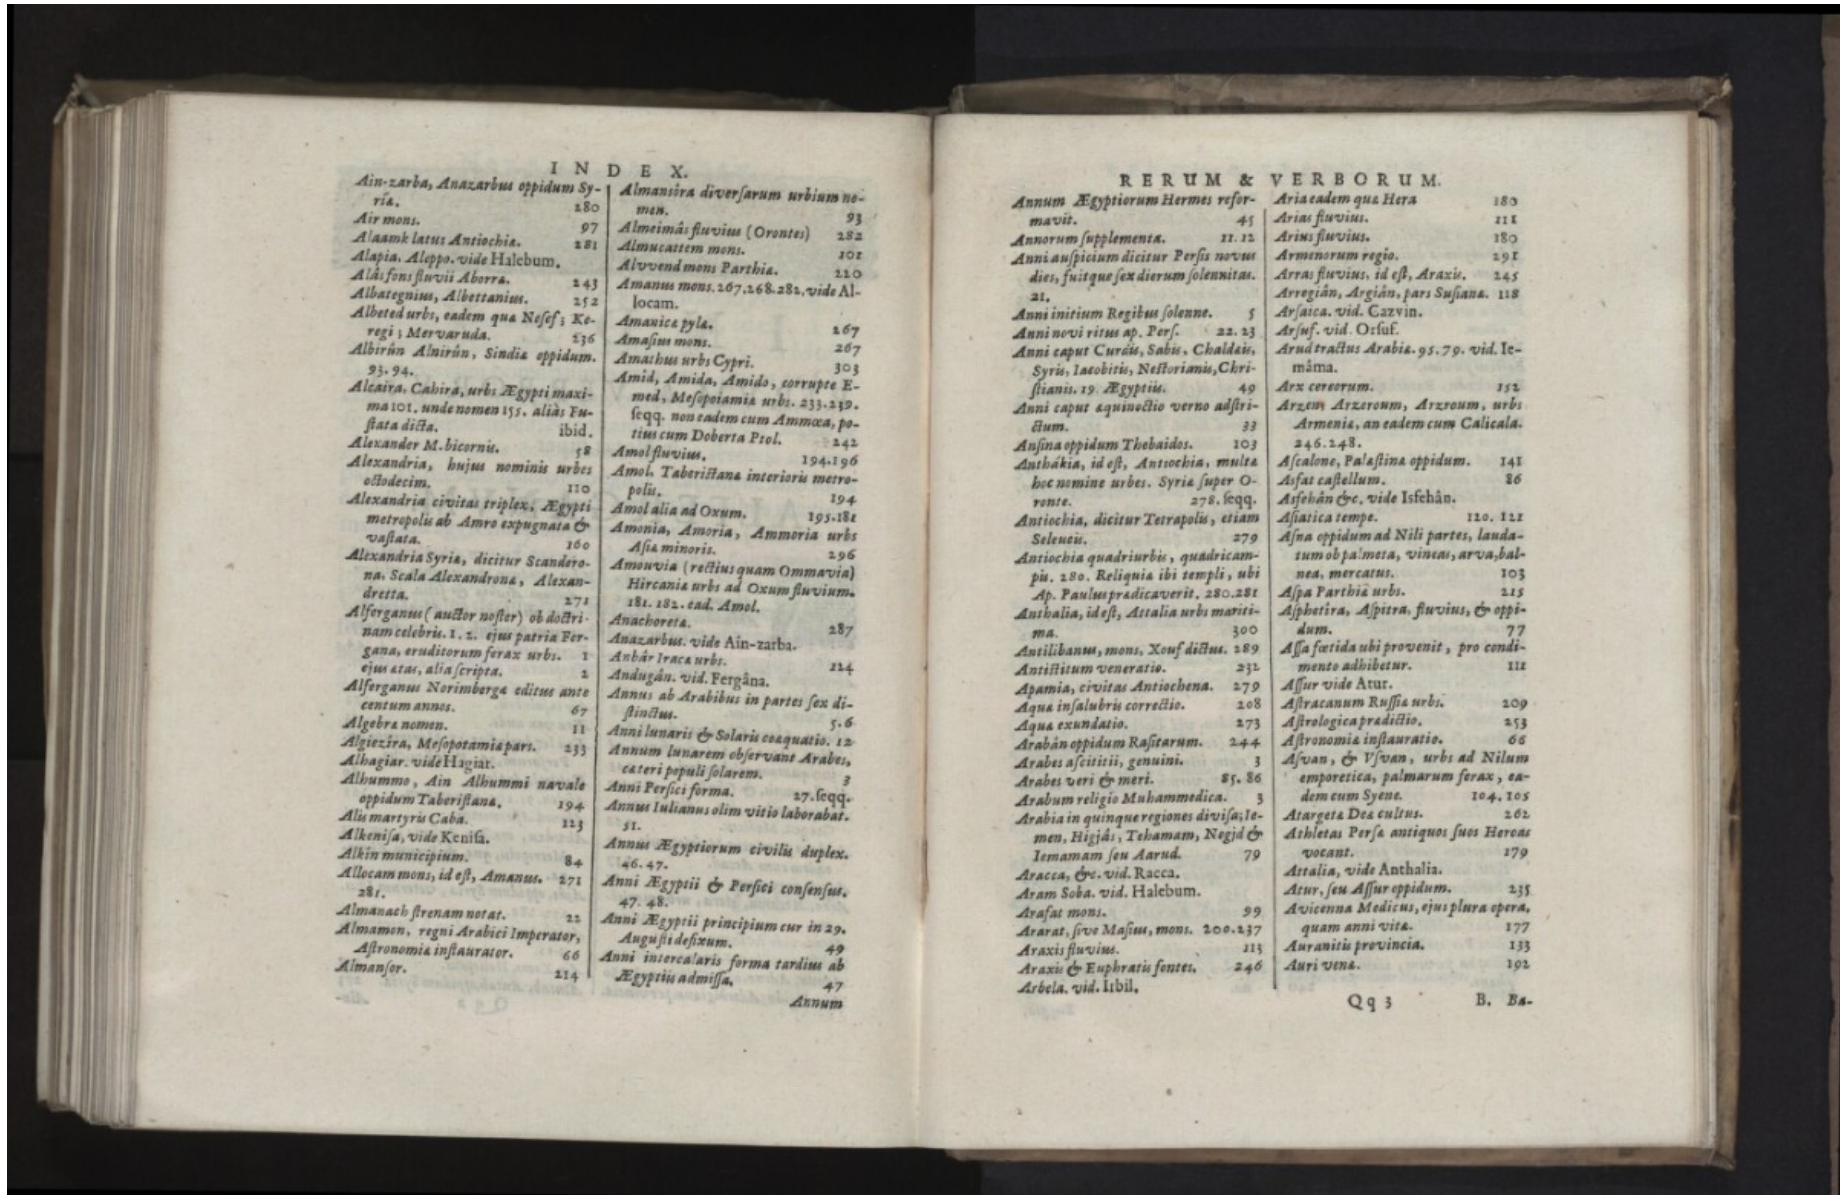 INDEX.
Ain-zarba, Anazarbus oppidum Sy-
riæ. 280
Air mons. 97
Alaamk latus Antiochiæ. 281
Alapia. Aleppo. vide Halebum.
Alâs fons fluvii Aborræ. 243
Albategnius, Albettanius. 252
Albeted urbs, eadem quæ Nesef; Ke-
regi; Mervaruda. 236
Albirûn Alnirûn, Sindiæ oppidum.
93. 94.
Alcaira, Cahira, urbs Ægypti maxi-
ma 101. unde nomen 155. aliàs Fu-
stata dicta. ibid.
Alexander M. bicornis. 58
Alexandria, hujus nominis urbes
octodecim. 110
Alexandria civitas triplex, Ægypti
metropolis ab Amro expugnata &
vastata. 160
Alexandria Syriæ, dicitur Scandero-
na, Scala Alexandrona, Alexan-
dretta. 271
Alferganus (auctor noster) ob doctri-
nam celebris. 1. 2. ejus patria Fer-
gana, eruditorum ferax urbs. 1
ejus ætas, alia scripta. 2
Alferganus Norimbergæ editus ante
centum annos. 67
Algebræ nomen. 11
Algiezîra, Mesopotamiæ pars. 233
Alhagiar. vide Hagiar.
Alhummo, Ain Alhummi navale
oppidum Taberistanæ. 194
Alis martyris Caba. 123
Alkenisa, vide Kenisa.
Alkîn municipium. 84
Allocam mons, id est, Amanus. 271
281.
Almanach strenam notat. 22
Almamon, regni Arabici Imperator,
Astronomiæ instaurator. 66
Almansor. 214
Almansôra diversarum urbium no-
men. 93
Almeimâs fluvius (Orontes) 282
Almucattem mons. 101
Alvvend mons Parthiæ. 220
Amanus mons. 267. 268. 282, vide Al-
locam.
Amanicæ pylæ. 267
Amasius mons. 267
Amathus urbs Cypri. 303
Amid, Amida, Amido, corrupte E-
med, Mesopotamiæ urbs. 233. 239.
seqq. non eadem cum Ammœa, po-
tius cum Doberta Ptol. 242
Amol fluvius. 194. 196
Amol. Taberictanæ interioris metro-
polis. 194
Amol alia ad Oxum. 195. 181
Amonia, Amoria, Ammoria urbs
Asiæ minoris. 296
Amouvia (rectius quam Ommavia)
Hircaniæ urbs ad Oxum fluvium.
181. 182. ead. Amol.
Anachoretæ. 287
Anazarbus. vide Ain-zarba.
Anbâr Iracæ urbs. 124
Andugân. vid. Fergâna.
Annus ab Arabibus in partes sex di-
stinctus. 5. 6
Anni lunaris & Solaris coæquatio. 12
Annum lunarem observant Arabes,
cæteri populi solarem. 3
Anni Persici forma. 27. seqq.
Annus Iulianus olim vitio laborabat.
51.
Annus Ægyptiorum civilis duplex.
46. 47.
Anni Ægyptii & Persici consensus.
47. 48.
Anni Ægyptii principium cur in 29.
Augusti defixum. 49
Anni intercalaris forma tardius ab
Ægyptiis admissa. 47
Annum
RERUM & VERBORUM.
Annum Ægyptiorum Hermes refor-
mavit. 45
Annorum supplementa. 11. 12
Anni auspicium dicitur Persis novus
dies, fuitque sex dierum solennitas.
21.
Anni initium Regibus solenne. 5
Anni novi ritus ap. Pers. 22. 23
Anni caput Curdis, Sabis, Chaldæis,
Syris, Iacobitis, Nestorianis, Chri-
stianis. 19. Ægyptiis. 49
Anni caput æquinoctio verno adstri-
ctum. 33
Ansina oppidum Thebaidos. 103
Anthâkia, id est, Antiochia, multæ
hoc nomine urbes. Syriæ super O-
ronte. 278. seqq.
Antiochia, dicitur Tetrapolis, etiam
Seleucis. 279
Antiochia quadriurbis, quadricam-
pis. 280. Reliquiæ ibi templi, ubi
Ap. Paulus prædicaverit. 280. 281
Anthalia, id est, Attalia urbs mariti-
ma. 300
Antilibanus, mons, Xouf dictus. 289
Antistitum veneratio. 232
Apamia, civitas Antiochena. 279
Aquæ insalubris correctio. 208
Aquæ exundatio. 273
Arabân oppidum Rasitarum. 244
Arabes ascititii, genuini. 3
Arabes veri & meri. 85. 86
Arabum religio Muhammedica. 3
Arabia in quinque regiones divisa; Ie-
men, Higjâs, Tehamam, Negjd &
Iemamam seu Aarud. 79
Aracca, &c. vid. Racca.
Aram Soba. vid. Halebum.
Arafat mons. 99
Ararat, sive Masius, mons. 200. 237
Araxis fluvius. 113
Araxis & Euphratis fontes. 246
Arbela. vid. Irbil.
Aria eadem quæ Hera 180
Arias fluvius. 111
Arius fluvius. 180
Armenorum regio. 291
Arras fluvius, id est, Araxis. 245
Arregiân, Argiân, pars Susianæ. 118
Arsaica. vid. Cazvin.
Arsuf. vid. Orsuf.
Arud tractus Arabiæ. 95. 79. vid. Ie-
mâma.
Arx cereorum. 152
Arzen, Arzeroum, Arzroum, urbs
Armeniæ, an eadem cum Calicala.
246. 248.
Ascalone, Palæstinæ oppidum. 141
Asfat castellum. 86
Asfehân &c. vide Isfehân.
Asiatica tempe. 120. 121
Asna oppidum ad Nili partes, lauda-
tum ob palmeta, vineas, arva, bal-
nea, mercatus. 103
Aspa Parthiæ urbs. 215
Asphetîra, Aspitra, fluvius, & oppi-
dum. 77
Assa fœtida ubi provenit, pro condi-
mento adhibetur. 111
Assur vide Atur.
Astracanum Russiæ urbs. 209
Astrologica prædictio. 253
Astronomiæ instauratio. 66
Asvan, & Vsvan, urbs ad Nilum
emporetica, palmarum ferax, ea-
dem cum Syene. 104. 105
Atargetæ Deæ cultus. 262
Athletas Persæ antiquos suos Heroas
vocant. 179
Attalia, vide Anthalia.
Atur, seu Assur oppidum. 235
Avicenna Medicus, ejus plura opera,
quam anni vitæ. 177
Auranitis provincia. 133
Auri venæ. 192
Qq 3 B. Ba-